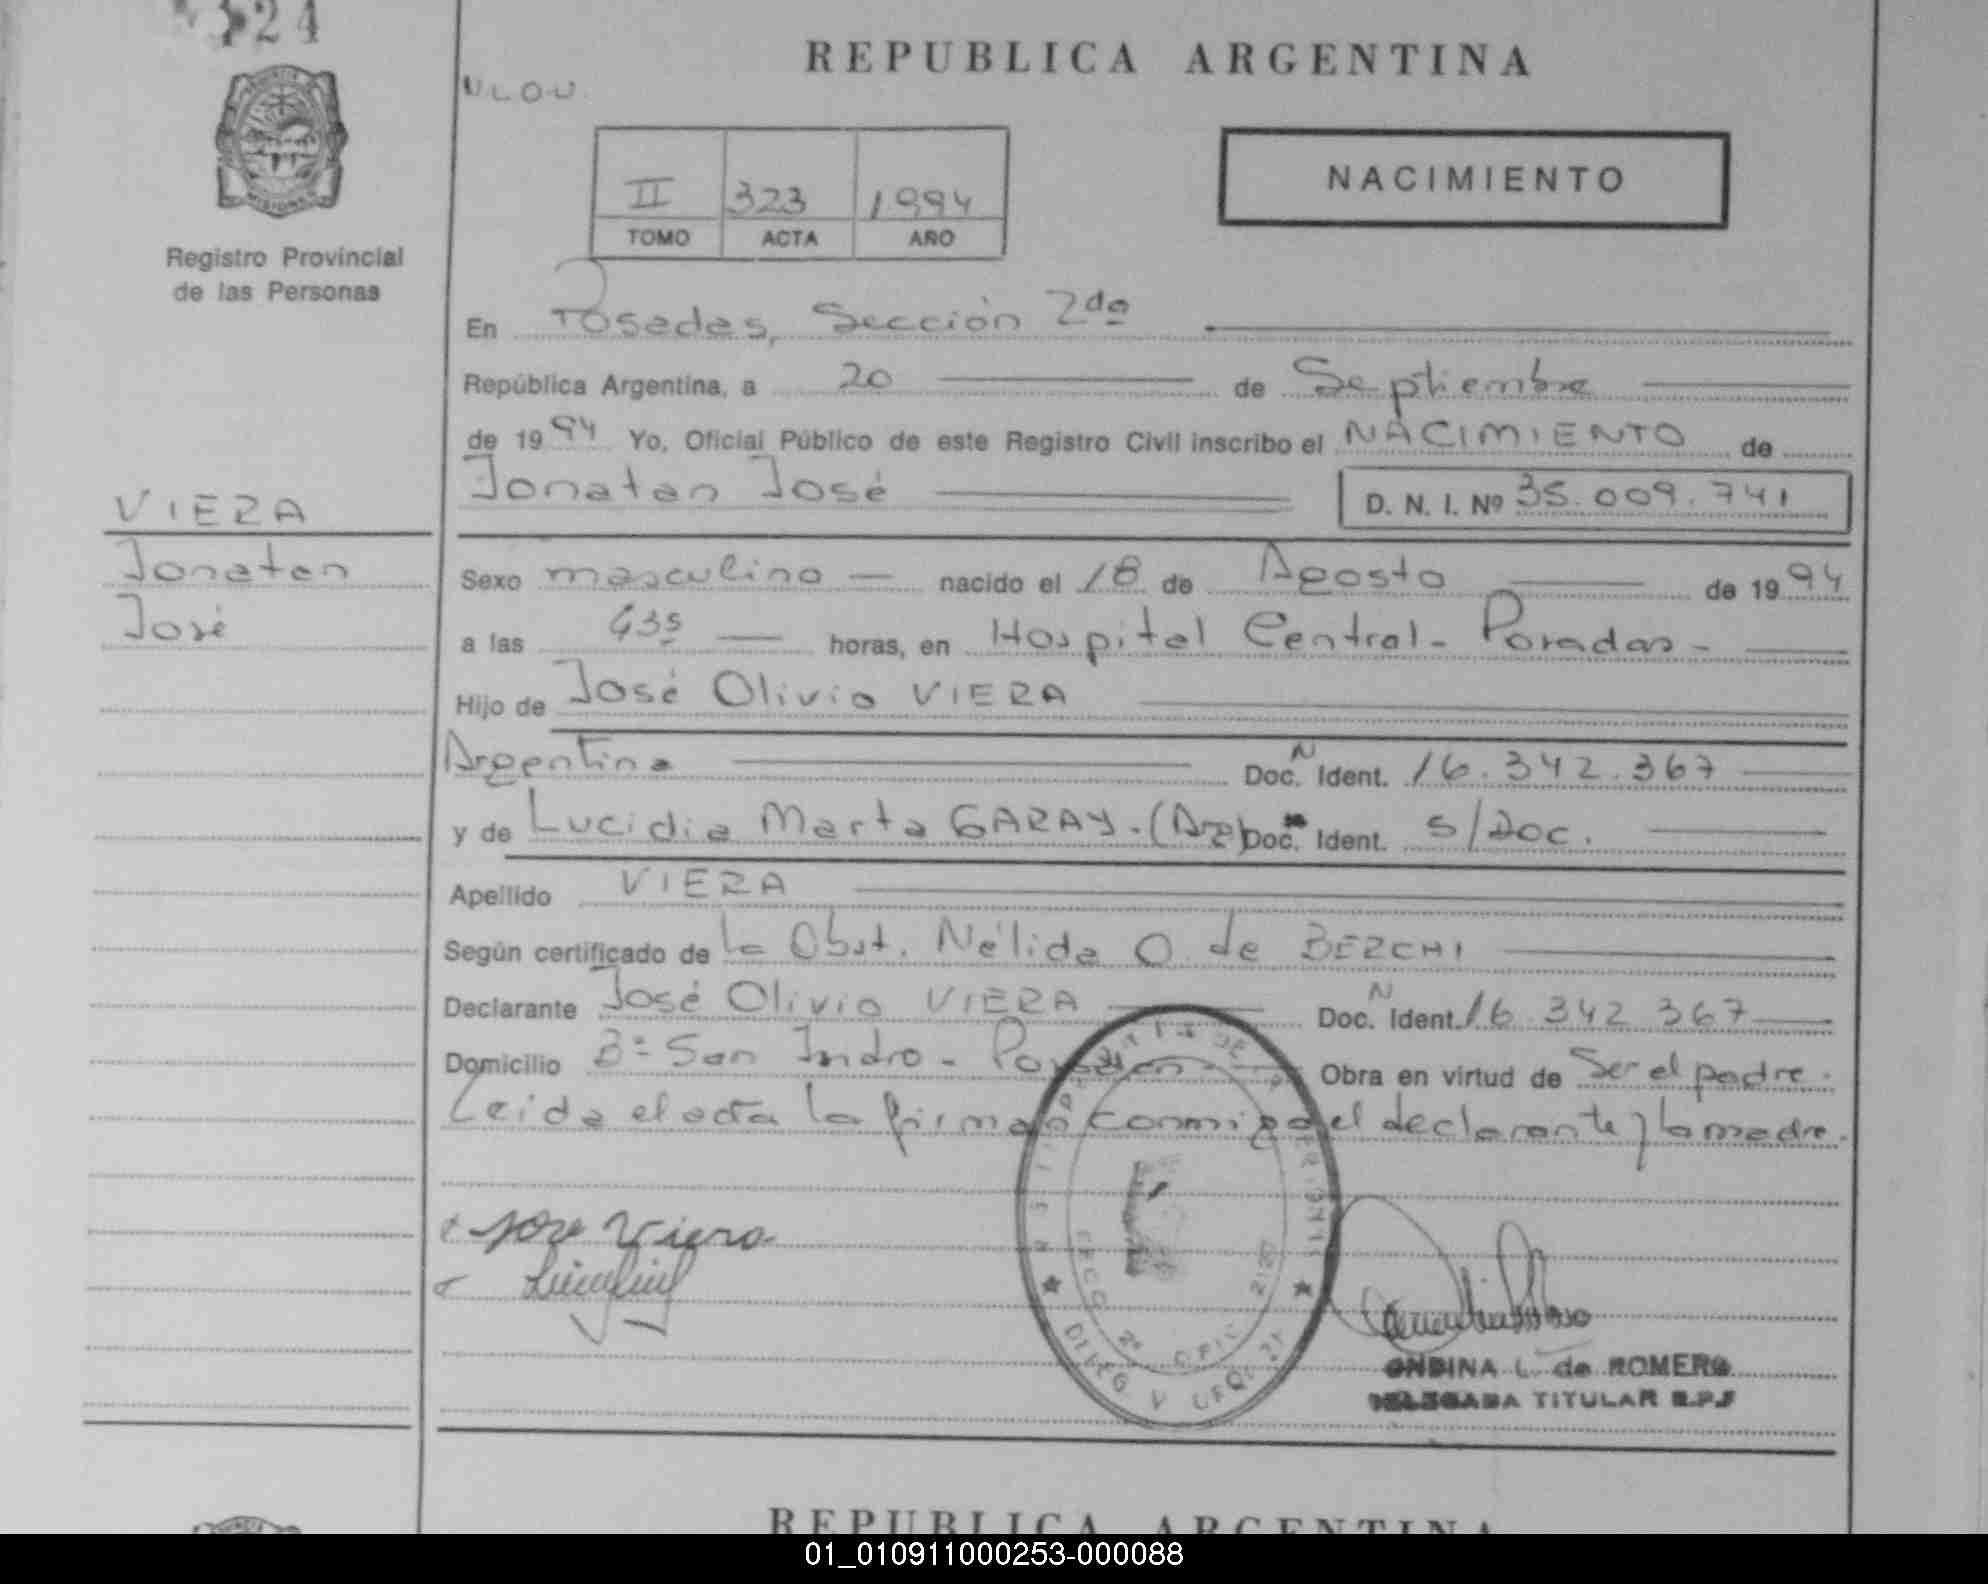 124
REPUBLICA ARGENTINA
MISIONES
Registro Provincial
de las Personas
NACIMIENTO
II 323 1994
TOMO ACTA AÑO
En Posadas, Sección 2da
República Argentina, a 20 de Septiembre
de 1994 Yo, Oficial Público de este Registro Civil inscribo el NACIMIENTO de
Jonatan José D. N. I. Nº 35.009.741
VIERA
Jonatan
José
Sexo masculino — nacido el 18 de Agosto de 1994
a las 435 — horas, en Hospital Central - Posadas -
Hijo de José Olivio VIERA
Argentina Doc. N Ident. 16.342.367
y de Lucidia Marta GARAY. (Arg) Doc. Ident. s/Doc.
Apellido VIERA
Según certificado de la Obst. Nélida O. de BERCHI
Declarante José Olivio VIERA Doc. N Ident. 16 342 367
Domicilio Bº San Isidro - Posadas - Obra en virtud de Ser el padre.
Leida el acta la firman conmigo el declarante y la madre.
Jose Viera
ONDINA L. de ROMERO
DELEGADA TITULAR R.P.P
REPUBLICA ARGENTINA
01_010911000253-000088